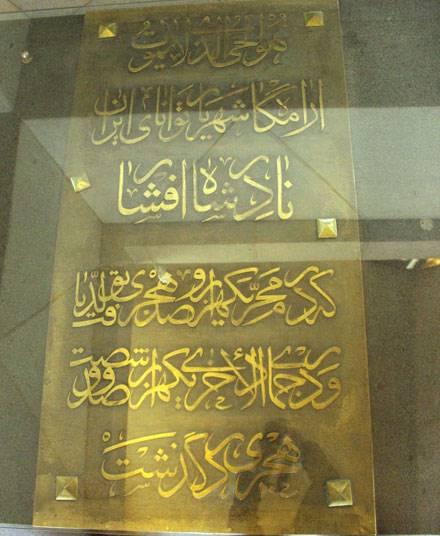 هو الحی الذی لا یموت
ارامگاه شهریار توانای ایران
نادر شاه افشار
که در محرم یکهزار و صد هجری تولد یافت
و در جمادی الاخری یکهزار و صد و شصت
هجری درگذشت